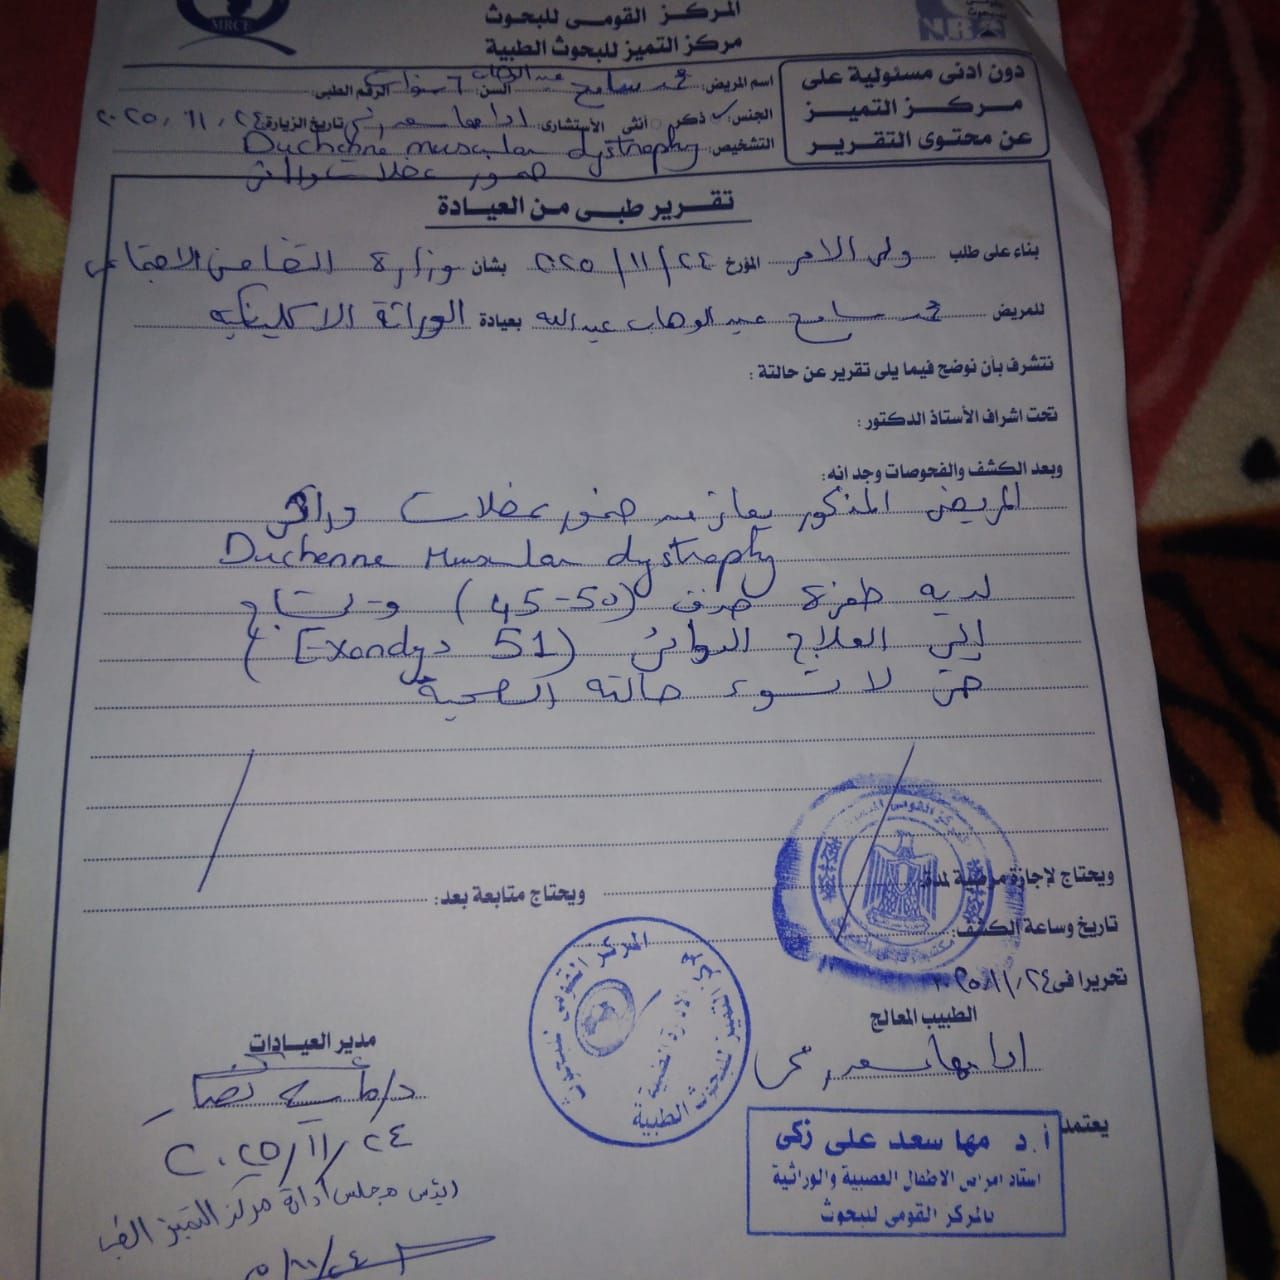 MRCE
NR
المركز القومى للبحوث
مركز التميز للبحوث الطبية
دون ادنى مسئولية على
مركز التميز
عن محتوى التقرير
اسم المريض: محمد سامح عبد الوهاب السن: ٦ سنوات الرقم الطبى:
الجنس: ذكر أنثى الأستشارى: ا.د/ مها سعد زكي تاريخ الزيارة ٢٤/١١/٢٠٢٥
التشخيص: Duchenne muscular dystrophy
ضمور عضلات وراثي
تقرير طبى من العيادة
بناء على طلب ولي الامر المؤرخ ٢٤/١١/٢٠٢٥ بشأن وزارة التضامن الاجتماعي
للمريض محمد سامح عبد الوهاب عبد الله بعيادة الوراثة الاكلينيكية
نتشرف بأن نوضح فيما يلى تقرير عن حالتة :
تحت اشراف الأستاذ الدكتور :
وبعد الكشف والفحوصات وجد انه:
المريض المذكور يعاني من ضمور عضلات وراثي
Duchenne Muscular dystrophy
لديه طفرة حذف (45-50) ويحتاج
إلي العلاج الدوائي (Exondys 51)
حتى لا تسوء حالته الصحية
ويحتاج لإجازة مرضية لمدة:
ويحتاج متابعة بعد:
تاريخ وساعة الكشف:
تحريرا فى ٢٤/١١/٢٠٢٥
المركز القومى للبحوث
الطبيب المعالج
مدير العيادات
ا.د/ مها سعد زكي
د/
٢٤/١١/٢٠٢٥
يعتمد
أ.د مها سعد على زكى
استاذ امراض الاطفال العصبية والوراثية
بالمركز القومى للبحوث
المركز القومى للبحوث
مركز التميز للبحوث الطبية
رئيس مجلس ادارة مركز التميز الطبي